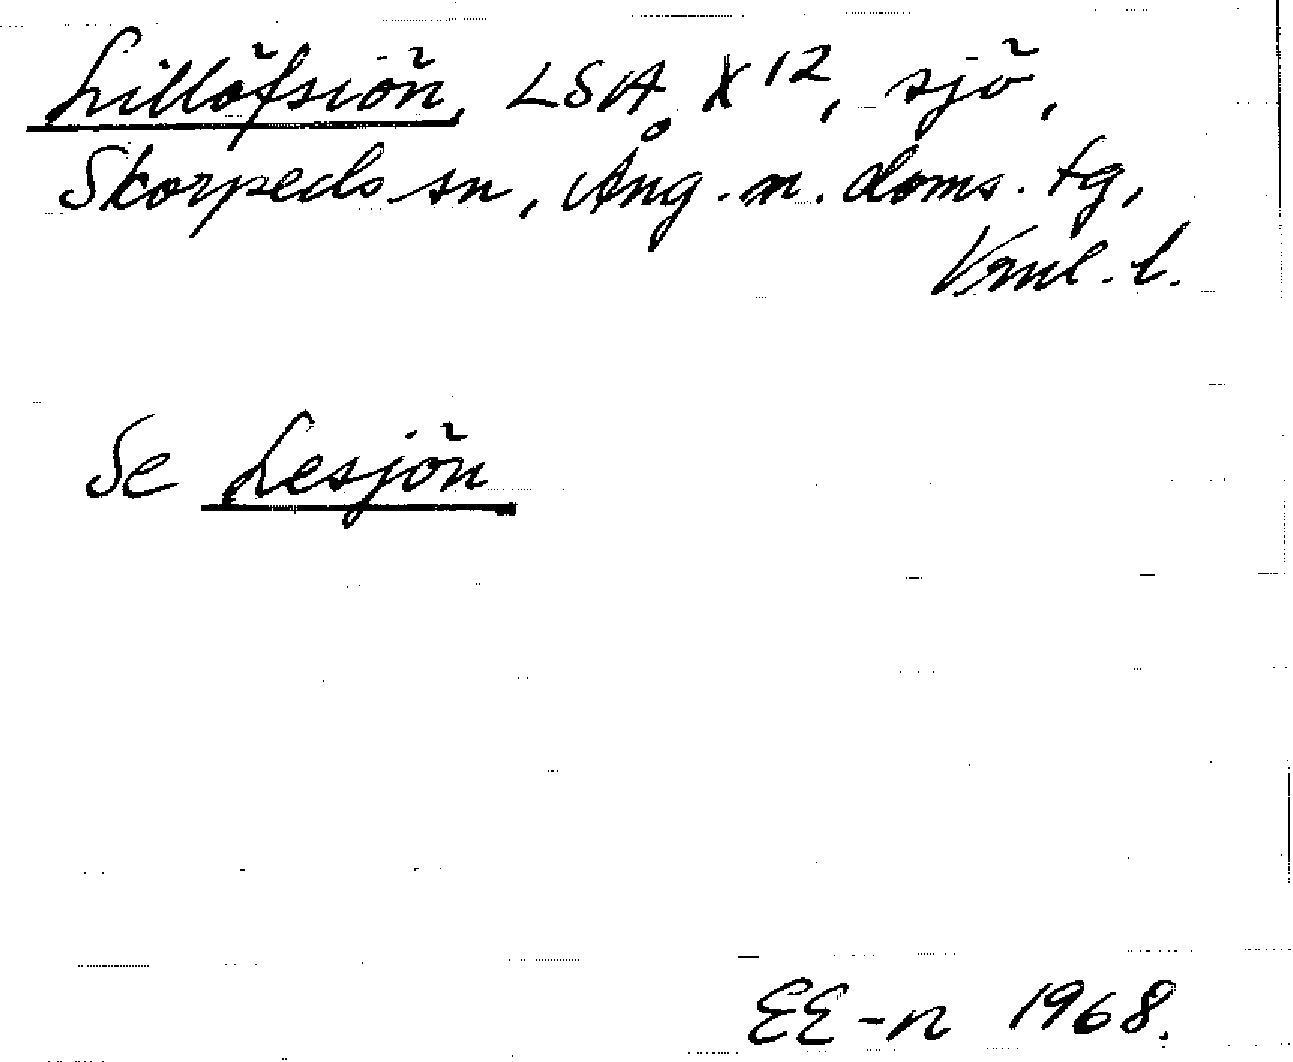 Lillöfsiön, LSA X 12, sjö,
Skorpeds sn, Ång. n. doms. tg,
Vnl. l.
Se Lesjön
EE-n 1968.